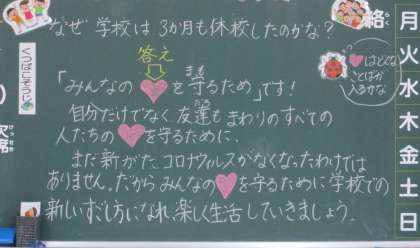 なぜ 学校は 3か月も休校したのかな?
答え
「みんなの♡を守るため」です!
まも
自分だけでなく友達も まわりのすべての
人たちの♡を守るために.
まだ新がたコロナウィルスがなくなったわけでは
ありません。だからみんなの♡を守るために学校での
新しいすごし方になれ、楽しく生活していきましょう.
♡はどんな
ことばが
入るかな
くつばこそうじ
絡
席
月
火
水
木
金
土
日